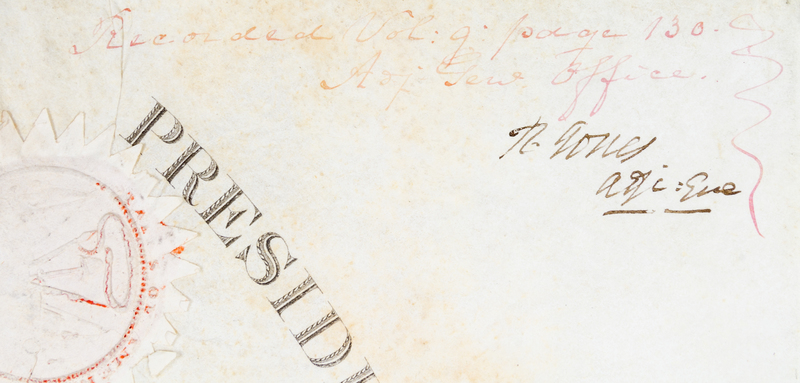 Recorded Vol: 9: page 130.
Adj Gen Office.
R Jones
Adj: Gen
PRESID